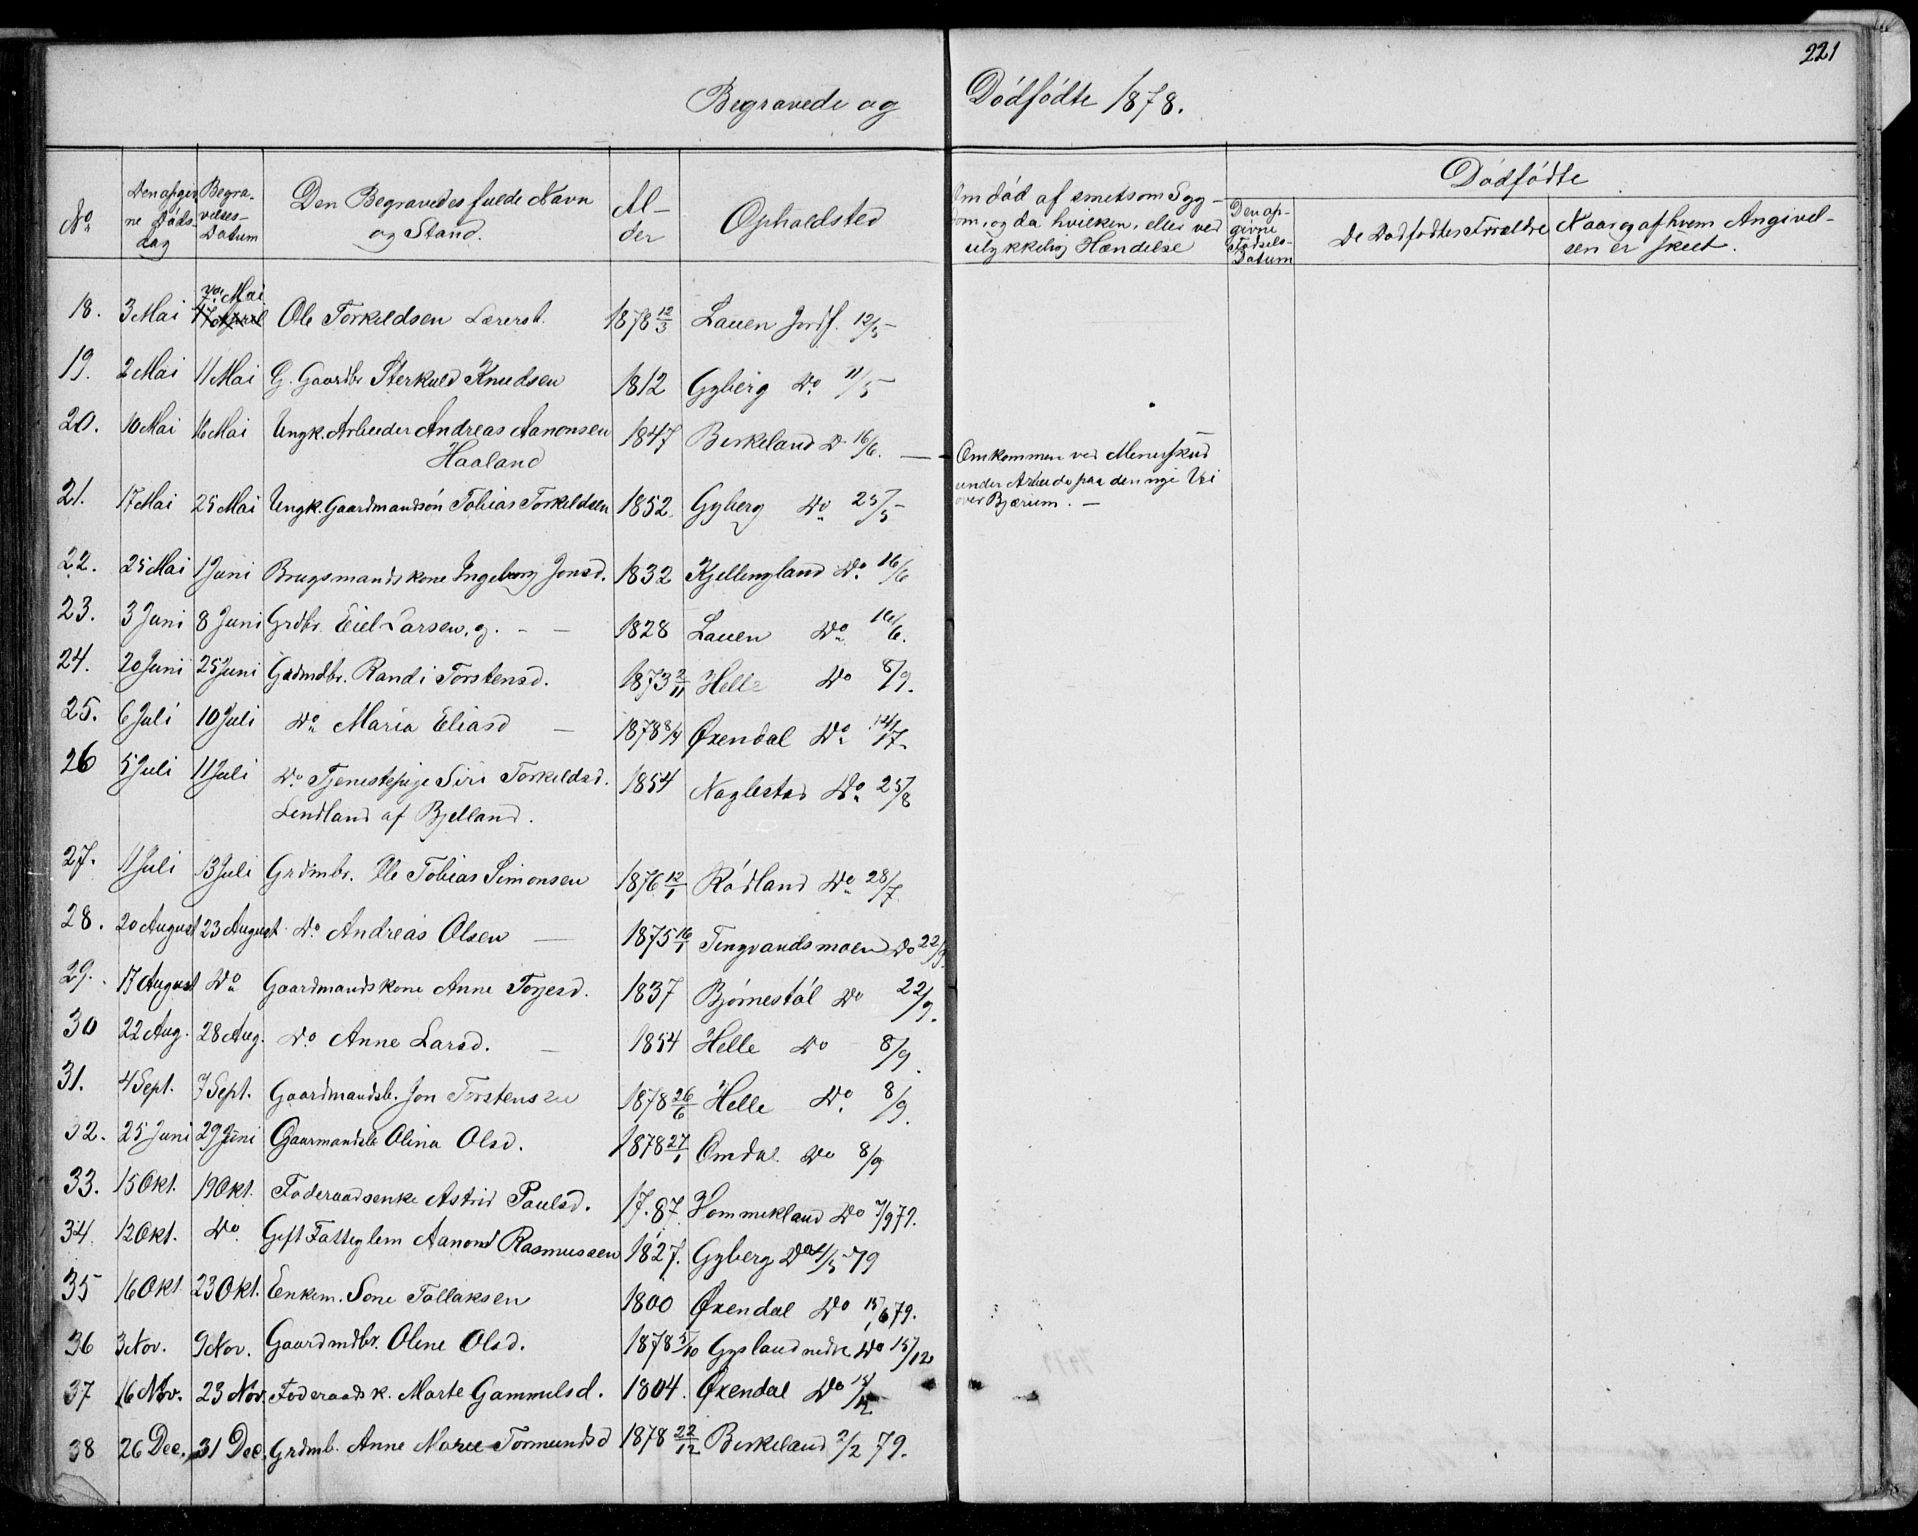 221
Begravede og Dódfódte 1878.
No
Den opgivne Dóds-dag
Begra-velses-Datum
Den Begravedes fulde Navn og Stand.
Al-der
Opholdsted
Om dód af smetsom Syg-dom, og da hvilken, eller ved ulykkelig Hændelse
Dódfódte
Den op-givne Fódsels-Datum
De Dódfódtes Forældre
Naar og af hvem Angivel-sen er skeet.
18. 3 Mai 7de Mai Ole Torkildsen Lærerst. 1878 12/3 Lauen Jordf. 12/5
19. 2 Mai 11 Mai G. Gaardbr. Sterkuld Knudsen 1812 Gyberg Do 11/5
20. 10 Mai 16 Mai Ungk. Arbeider Andreas Aanonsen Haaland 1847 Birkeland D 16/6. — Omkommen ved Minerskud under Arbeide paa den nye Vei over Bjærum. —
21. 17 Mai 25 Mai Ungk. Gaardmandsón Tobias Torkildsen 1852 Gyberg Do 25/5
22. 25 Mai 1 Juni Brugsmandskone Ingeborg Jonsd. 1832 Kjellingland Do 16/6
23. 3 Juni 8 Juni Grdbr. Eiel Larsen, g. - — 1828 Lauen Do 16/6.
24. 20 Juni 25 Juni Grdmdbr. Randi Torstensd. 1873 2/11 Helle Do 8/9.
25. 6 Juli 10 Juli Do Maria Eliasd — 1878 8/4 Øxendal Do 14/7.
26 5 Juli 11 Juli Do Tjenestepige Siri Torkildsd. Lindland af Bjelland. 1854 Naglestad Do 25/8
27. 11 Juli 13 Juli Grdmbr. Ole Tobias Simonsen 1876 12/1 Ródland Do 28/7.
28. 20 August 23 August Do Andreas Olsen — 1875 16/1 Tingvandsmoen Do 22/9.
29. 17 August Do Gaardmandskone Anne Torjesd. 1837 Bjórnestól Do 22/9.
30 22 Aug. 28 Aug. Do Anne Larsd. — 1854 Helle Do 8/9.
31. 4 Sept. 7 Sept. Gaardmandsb. Jon Torstensen 1878 26/6 Helle Do 8/9.
32. 25 Juni 29 Juni Gaarmandsb Olina Olsd. 1878 27/1 Omdal Do 8/9
33. 15 Okt. 19 Okt. Foderaadsenke Astrid Paulsd. 17.87. Hommekland Do 7/9 79.
34. 12 Okt. Do Gift Fattiglem Aanond Rasmussen 1827. Gyberg Do 4/5 79
35 16 Okt 23 Okt. Enkem. Sone Tollaksen 1800 Øxendal Do 15/6 79.
36 3 Nov. 9 Nov. Gaardmdbr. Oline Olsd. 1878 5/10 Gysland nedre Do 15/12
37 16 Nov. 23 Nov. Foderaadsk. Marte Gammelsd. 1804. Øxendal Do
38 26 Dec. 31 Dec. Grdmb. Anne Marie Tormundsd 1878 22/12 Birkeland 2/2 79.